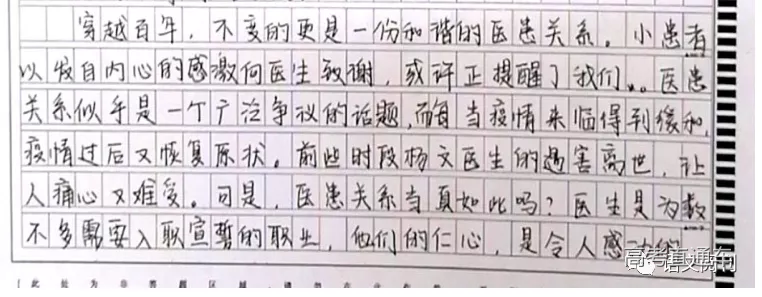 穿越百年，不变的更是一份和谐的医患关系。小患者
以发自内心的感激向医生致谢，或许正提醒了我们，医患
关系似乎是一个广泛争议的话题，而自当疫情来临得到缓和，
疫情过后又恢复原状。前些时段杨文医生的遇害离世，让
人痛心又难受。可是，医患关系当真如此吗？医生是为数
不多需要入职宣誓的职业，他们的仁心，是令人感动的
高考直通车